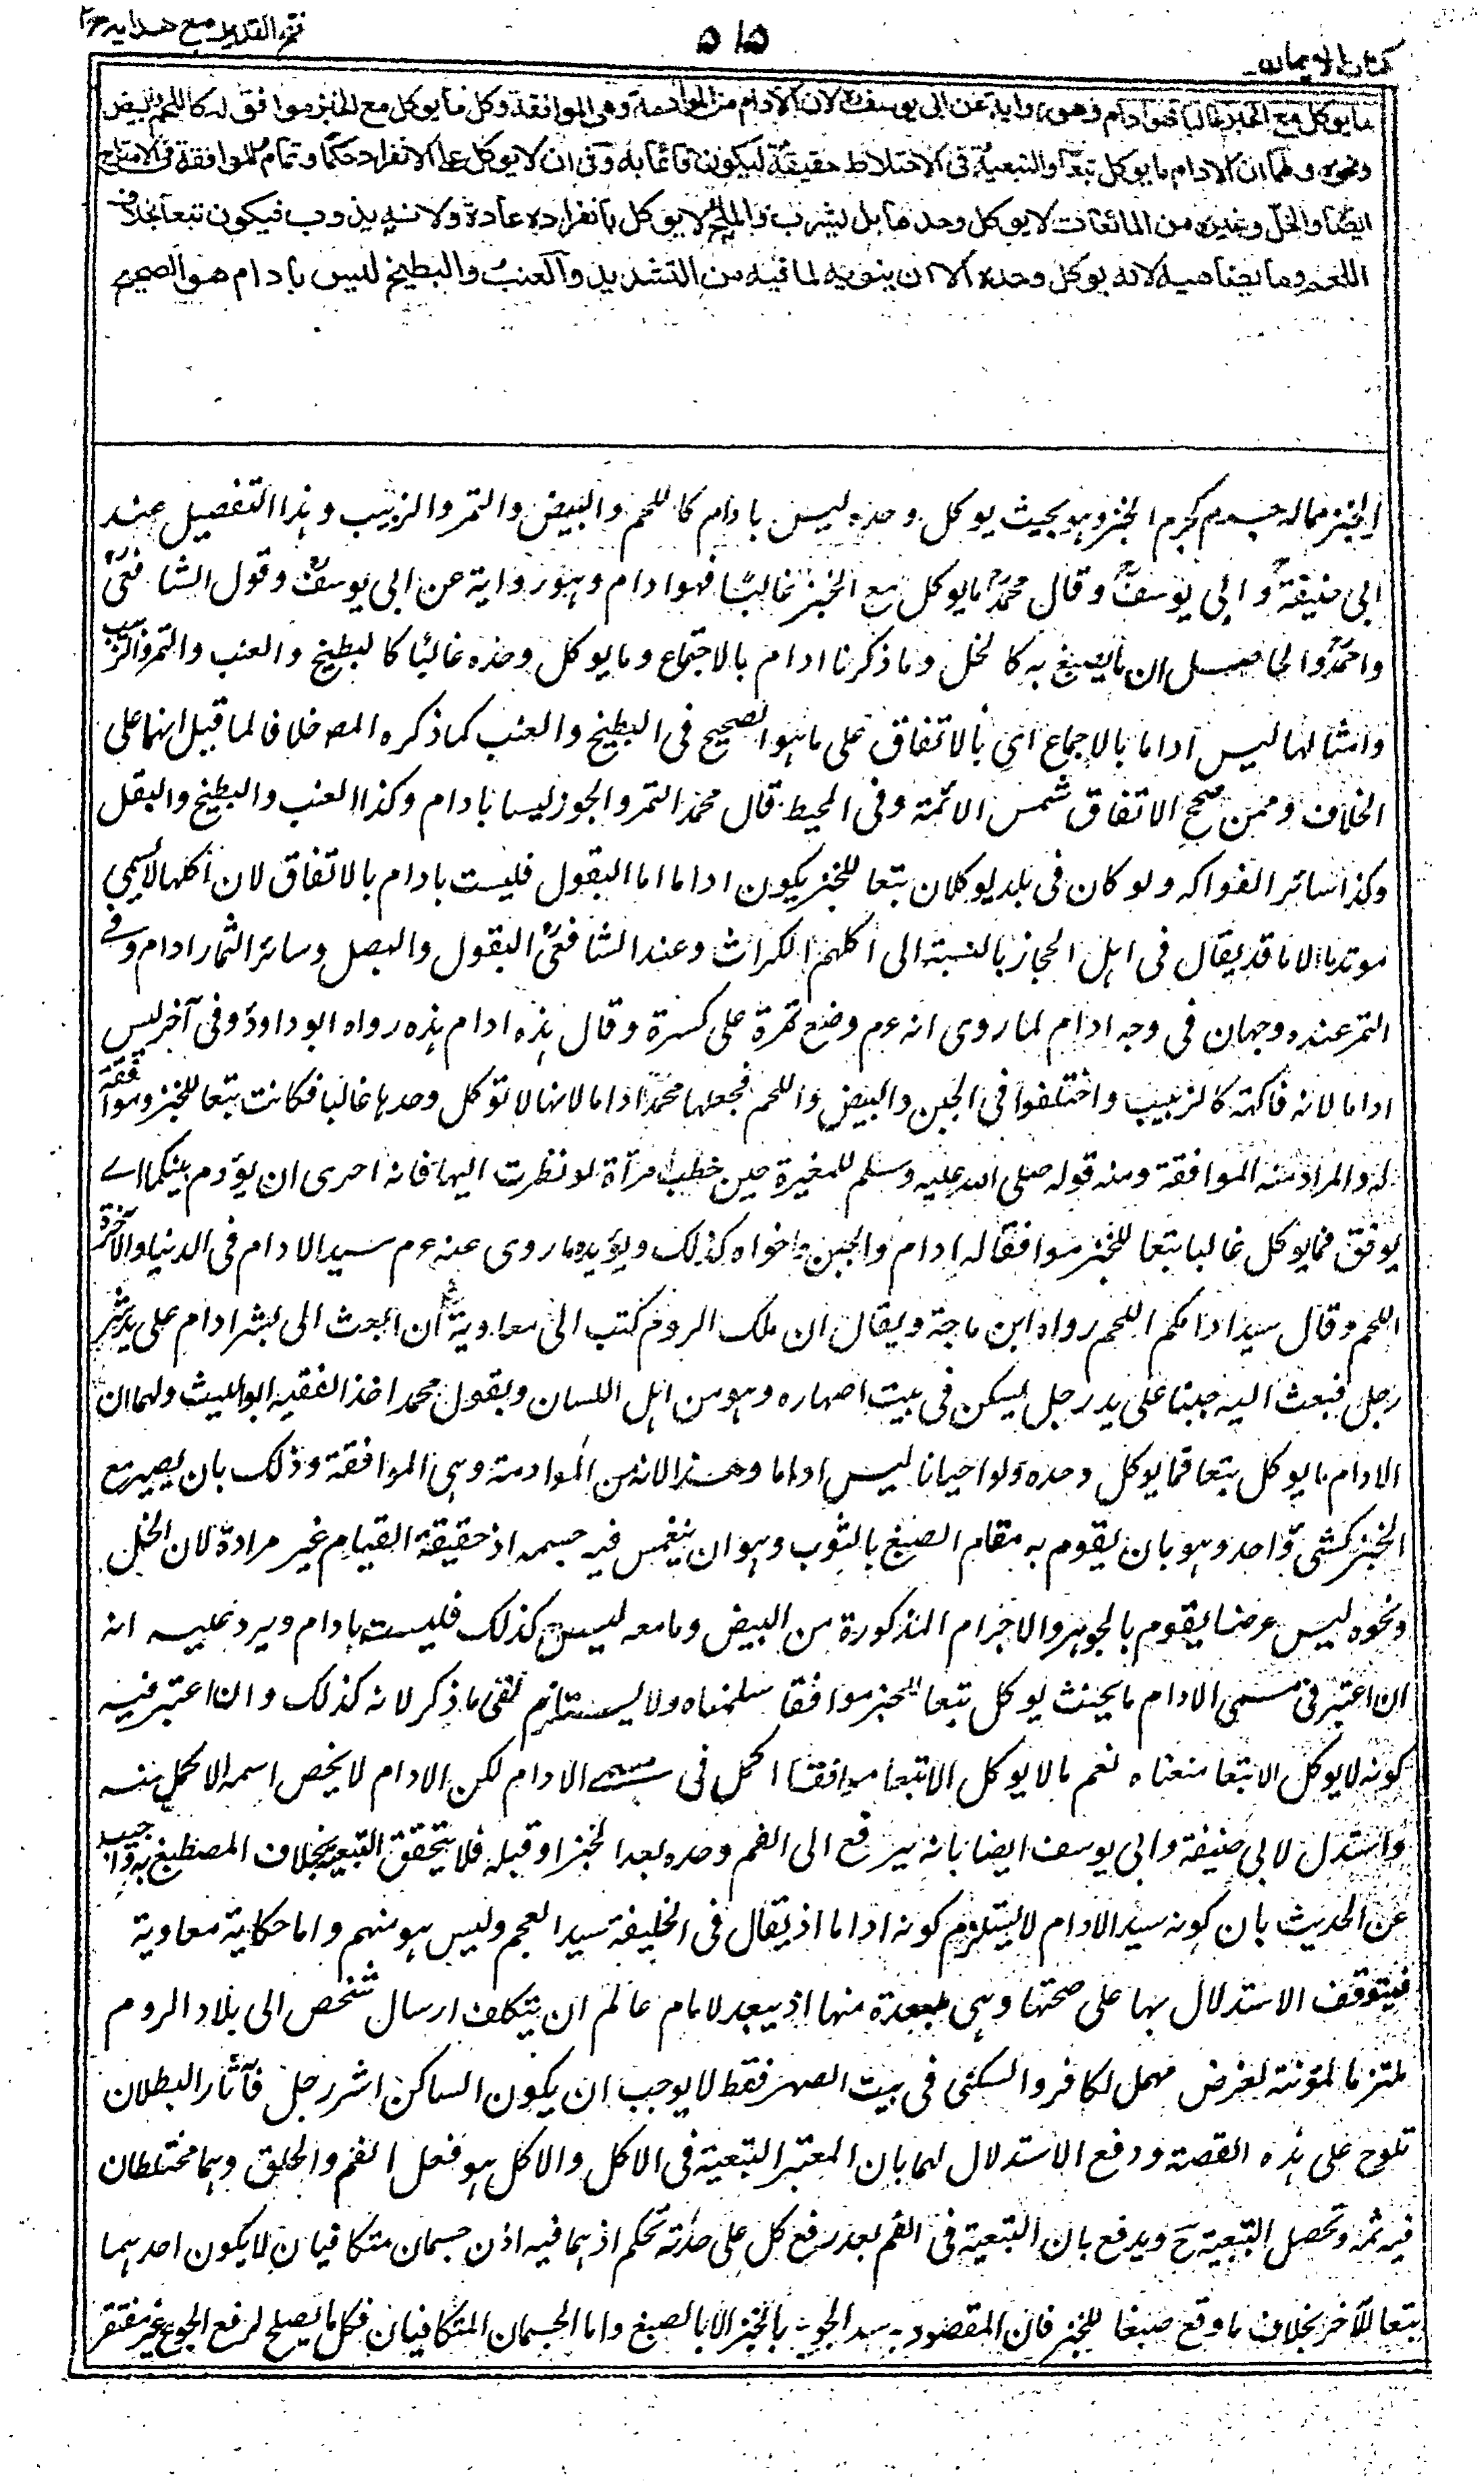 فتح القدير مع هدايه ج٢
٥١٥
كتاب الايمان
ما يوكل مع الخبز غالبا فهو ادام وهو رواية عن ابى يوسف لان الادام من الموادمة وهى الموافقة وكل ما يوكل مع الخبز موافق له كاللحم والبيض
ونحوه ولهما ان الادام ما يوكل تبعا والتبعية فى الاختلاط حقيقة ليكون قائما به وفى ان لا يوكل على الانفراد حكما وتمام الموافقة فى الامتزاج
ايضا والخل وغيره من المائعات لا يوكل وحدها بل يشرب والملح لا يوكل بانفراده عادة ولانه يذوب فيكون تبعا بخلاف
اللحم وما يضاهيه لانه يوكل وحده الا ان ينويه لما فيه من التشديد والعنب والبطيخ ليس بادام هو الصحيح
الخبز مما له جسم كجرم الخبز وهو بحيث يوكل وحده ليس بادام كاللحم والبيض والتمر والزبيب وهذا التفصيل عند
ابى حنيفة وابى يوسف وقال محمد ما يوكل مع الخبز غالبا فهو ادام وهو رواية عن ابى يوسف وقول الشافعى
واحمد والحاصل ان ما يصبغ به كالخل وما ذكرنا ادام بالاجماع وما يوكل وحده غالبا كالبطيخ والعنب والتمر والزبيب
وامثالها ليس اداما بالاجماع اى بالاتفاق على ما هو الصحيح فى البطيخ والعنب كما ذكره المص خلافا لما قيل انهما على
الخلاف وممن صحح الاتفاق شمس الائمة وفى المحيط قال محمد التمر والجوز ليسا بادام وكذا العنب والبطيخ والبقل
وكذا سائر الفواكه ولو كان فى بلد يوكلان تبعا للخبز يكون اداما اما البقول فليست بادام بالاتفاق لان آكلها لا يسمى
موتدما الا ما قد يقال فى اهل الحجاز بالنسبة الى اكلهم الكراث وعند الشافعى البقول والبصل وسائر الثمار ادام وفى
التمر عنده وجهان فى وجه ادام لما روى انه عم وضع تمرة على كسرة وقال هذه ادام هذه رواه ابو داود وفى آخر ليس
اداما لانه فاكهة كالزبيب واختلفوا فى الجبن والبيض واللحم فجعلها محمد اداما لانها لا توكل وحدها غالبا فكانت تبعا للخبز وموافقة
له والمراد منه الموافقة ومنه قوله صلى الله عليه وسلم للمغيرة حين خطب امرأة لو نظرت اليها فانه احرى ان يؤدم بينكما اے
يوفق فما يوكل غالبا تبعا للخبز موافقا له ادام والجبن واخواه كذلك ويؤيده ما روى عنه عم سيد الادام فى الدنيا والآخرة
اللحم وقال سيد ادامكم اللحم رواه ابن ماجة ويقال ان ملك الروم كتب الى معاوية ان ابعث الى بشر ادام على يد شر
رجل فبعث اليه جبنا على يد رجل يسكن فى بيت اصهاره وهو من اهل اللسان وبقول محمد اخذ الفقيه ابو الليث ولهما ان
الادام ما يوكل تبعا فما يوكل وحده ولو احيانا ليس اداما وهذا لانه من الموادمة وهى الموافقة وذلك بان يصير مع
الخبز كشئ واحد وهو بان يقوم به مقام الصبغ بالثوب وهو ان ينغمس فيه جسمه اذ حقيقة القيام غير مرادة لان الخل
ونحوه ليس عرضا يقوم بالجوهر والاجرام المذكورة من البيض وما معه ليس كذلك فليست بادام ويرد عليه انه
ان اعتبر فى مسمى الادام ما بحيث يوكل تبعا للخبز موافقا سلمناه ولا يستلزم نفى ما ذكر لانه كذلك وان اعتبر فيه
كونه لا يوكل الا تبعا منعناه نعم ما لا يوكل الا تبعا موافقا اكمل فى مسمى الادام لكن الادام لا يخص اسمه الاكمل منه
واستدل لابى حنيفة وابى يوسف ايضا بانه يرفع الى الفم وحده بعد الخبز او قبله فلا يتحقق التبعية بخلاف المصطبغ به واجيب
عن الحديث بان كونه سيد الادام لا يستلزم كونه اداما اذ يقال فى الخليفة سيد العجم وليس هو منهم واما حكاية معاوية
فيتوقف الاستدلال بها على صحتها وهى بعيدة منها اذ يبعد لامام عالم ان يتكلف ارسال شخص الى بلاد الروم
ملتزما لمؤنته لغرض مهمل لكافر والسكنى فى بيت الصهر فقط لا يوجب ان يكون الساكن اشر رجل فآثار البطلان
تلوح على هذه القصة ودفع الاستدلال لهما بان المعتبر التبعية فى الاكل والاكل هو فعل الفم والحلق وهما مختلطان
فيه ثمه وتحصل التبعية ح ويدفع بان التبعية فى الفم بعد رفع كل على حدته تحكم اذ هما فيه اذن جسمان متكافيان لا يكون احدهما
تبعا للآخر بخلاف ما وقع صبغا للخبز فان المقصود به سد الجوع بالخبز لا بالصبغ واما الجسمان المتكافيان فكل ما يصلح لرفع الجوع غير مفتقر